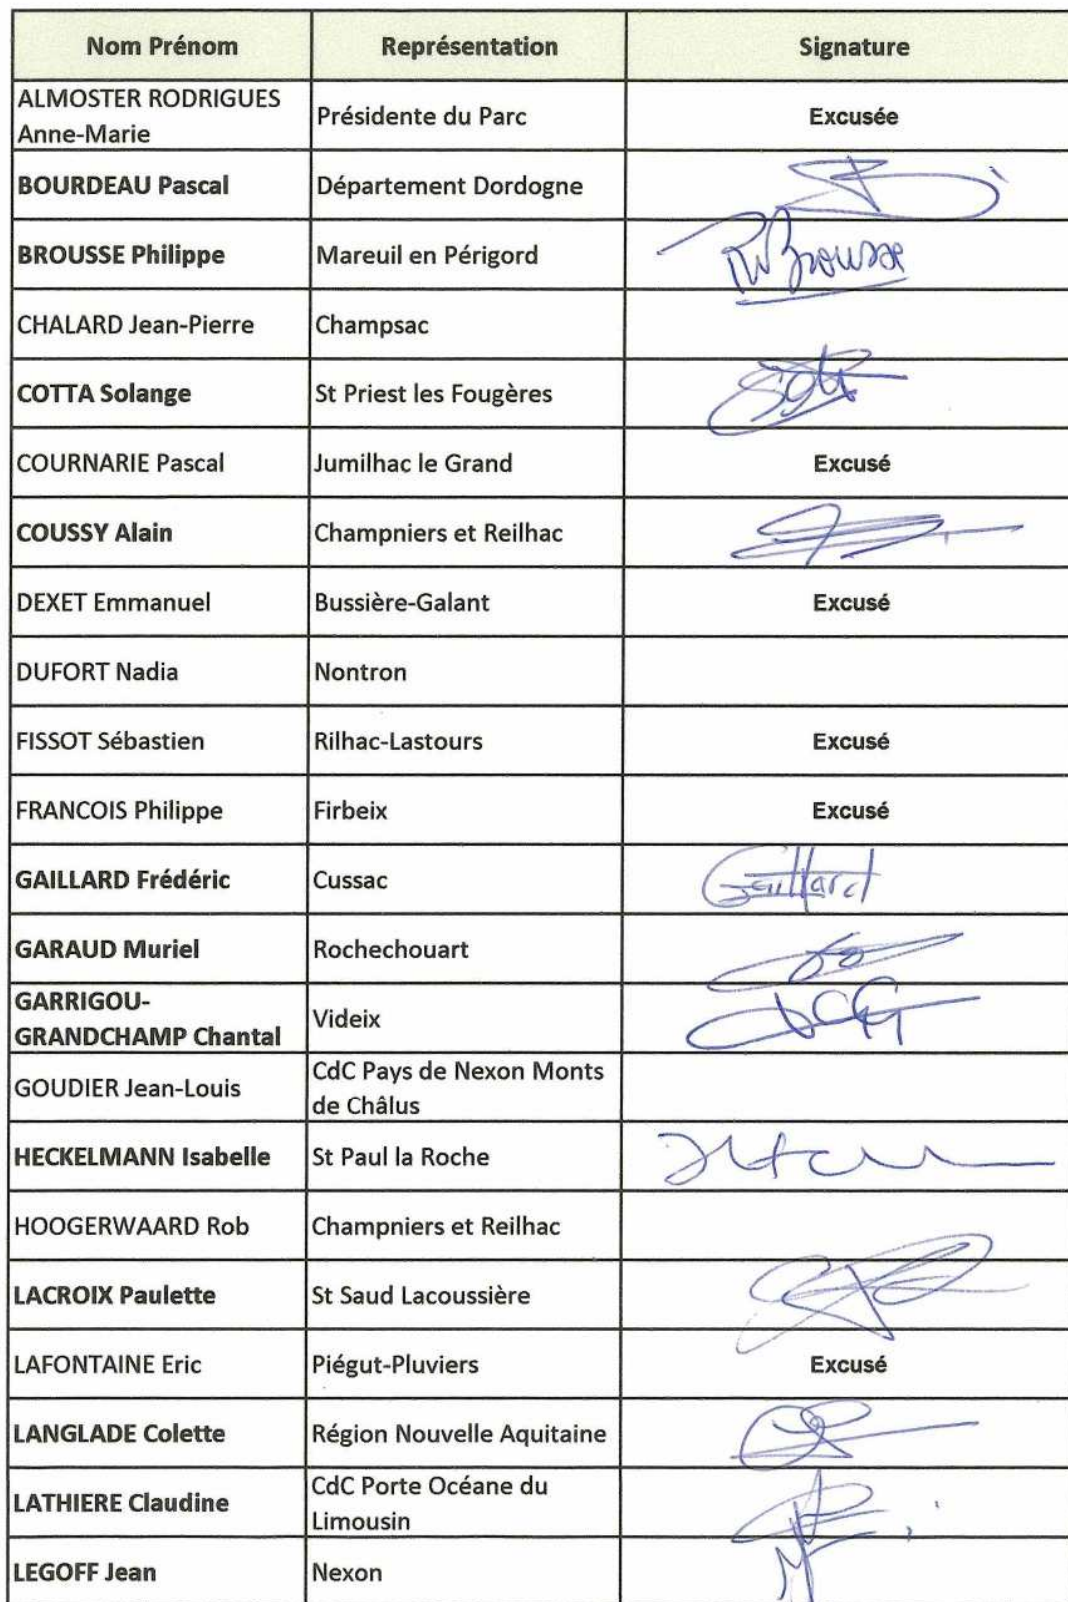 Nom Prénom Représentation Signature
ALMOSTER RODRIGUES
Anne-Marie
Présidente du Parc Excusée
BOURDEAU Pascal Département Dordogne
BROUSSE Philippe Mareuil en Périgord Brousse
CHALARD Jean-Pierre Champsac
COTTA Solange St Priest les Fougères
COURNARIE Pascal Jumilhac le Grand Excusé
COUSSY Alain Champniers et Reilhac
DEXET Emmanuel Bussière-Galant Excusé
DUFORT Nadia Nontron
FISSOT Sébastien Rilhac-Lastours Excusé
FRANCOIS Philippe Firbeix Excusé
GAILLARD Frédéric Cussac Gaillard
GARAUD Muriel Rochechouart
GARRIGOU-
GRANDCHAMP Chantal
Videix
GOUDIER Jean-Louis
CdC Pays de Nexon Monts
de Châlus
HECKELMANN Isabelle St Paul la Roche
HOOGERWAARD Rob Champniers et Reilhac
LACROIX Paulette St Saud Lacoussière
LAFONTAINE Eric Piégut-Pluviers Excusé
LANGLADE Colette Région Nouvelle Aquitaine
LATHIERE Claudine
CdC Porte Océane du
Limousin
LEGOFF Jean Nexon